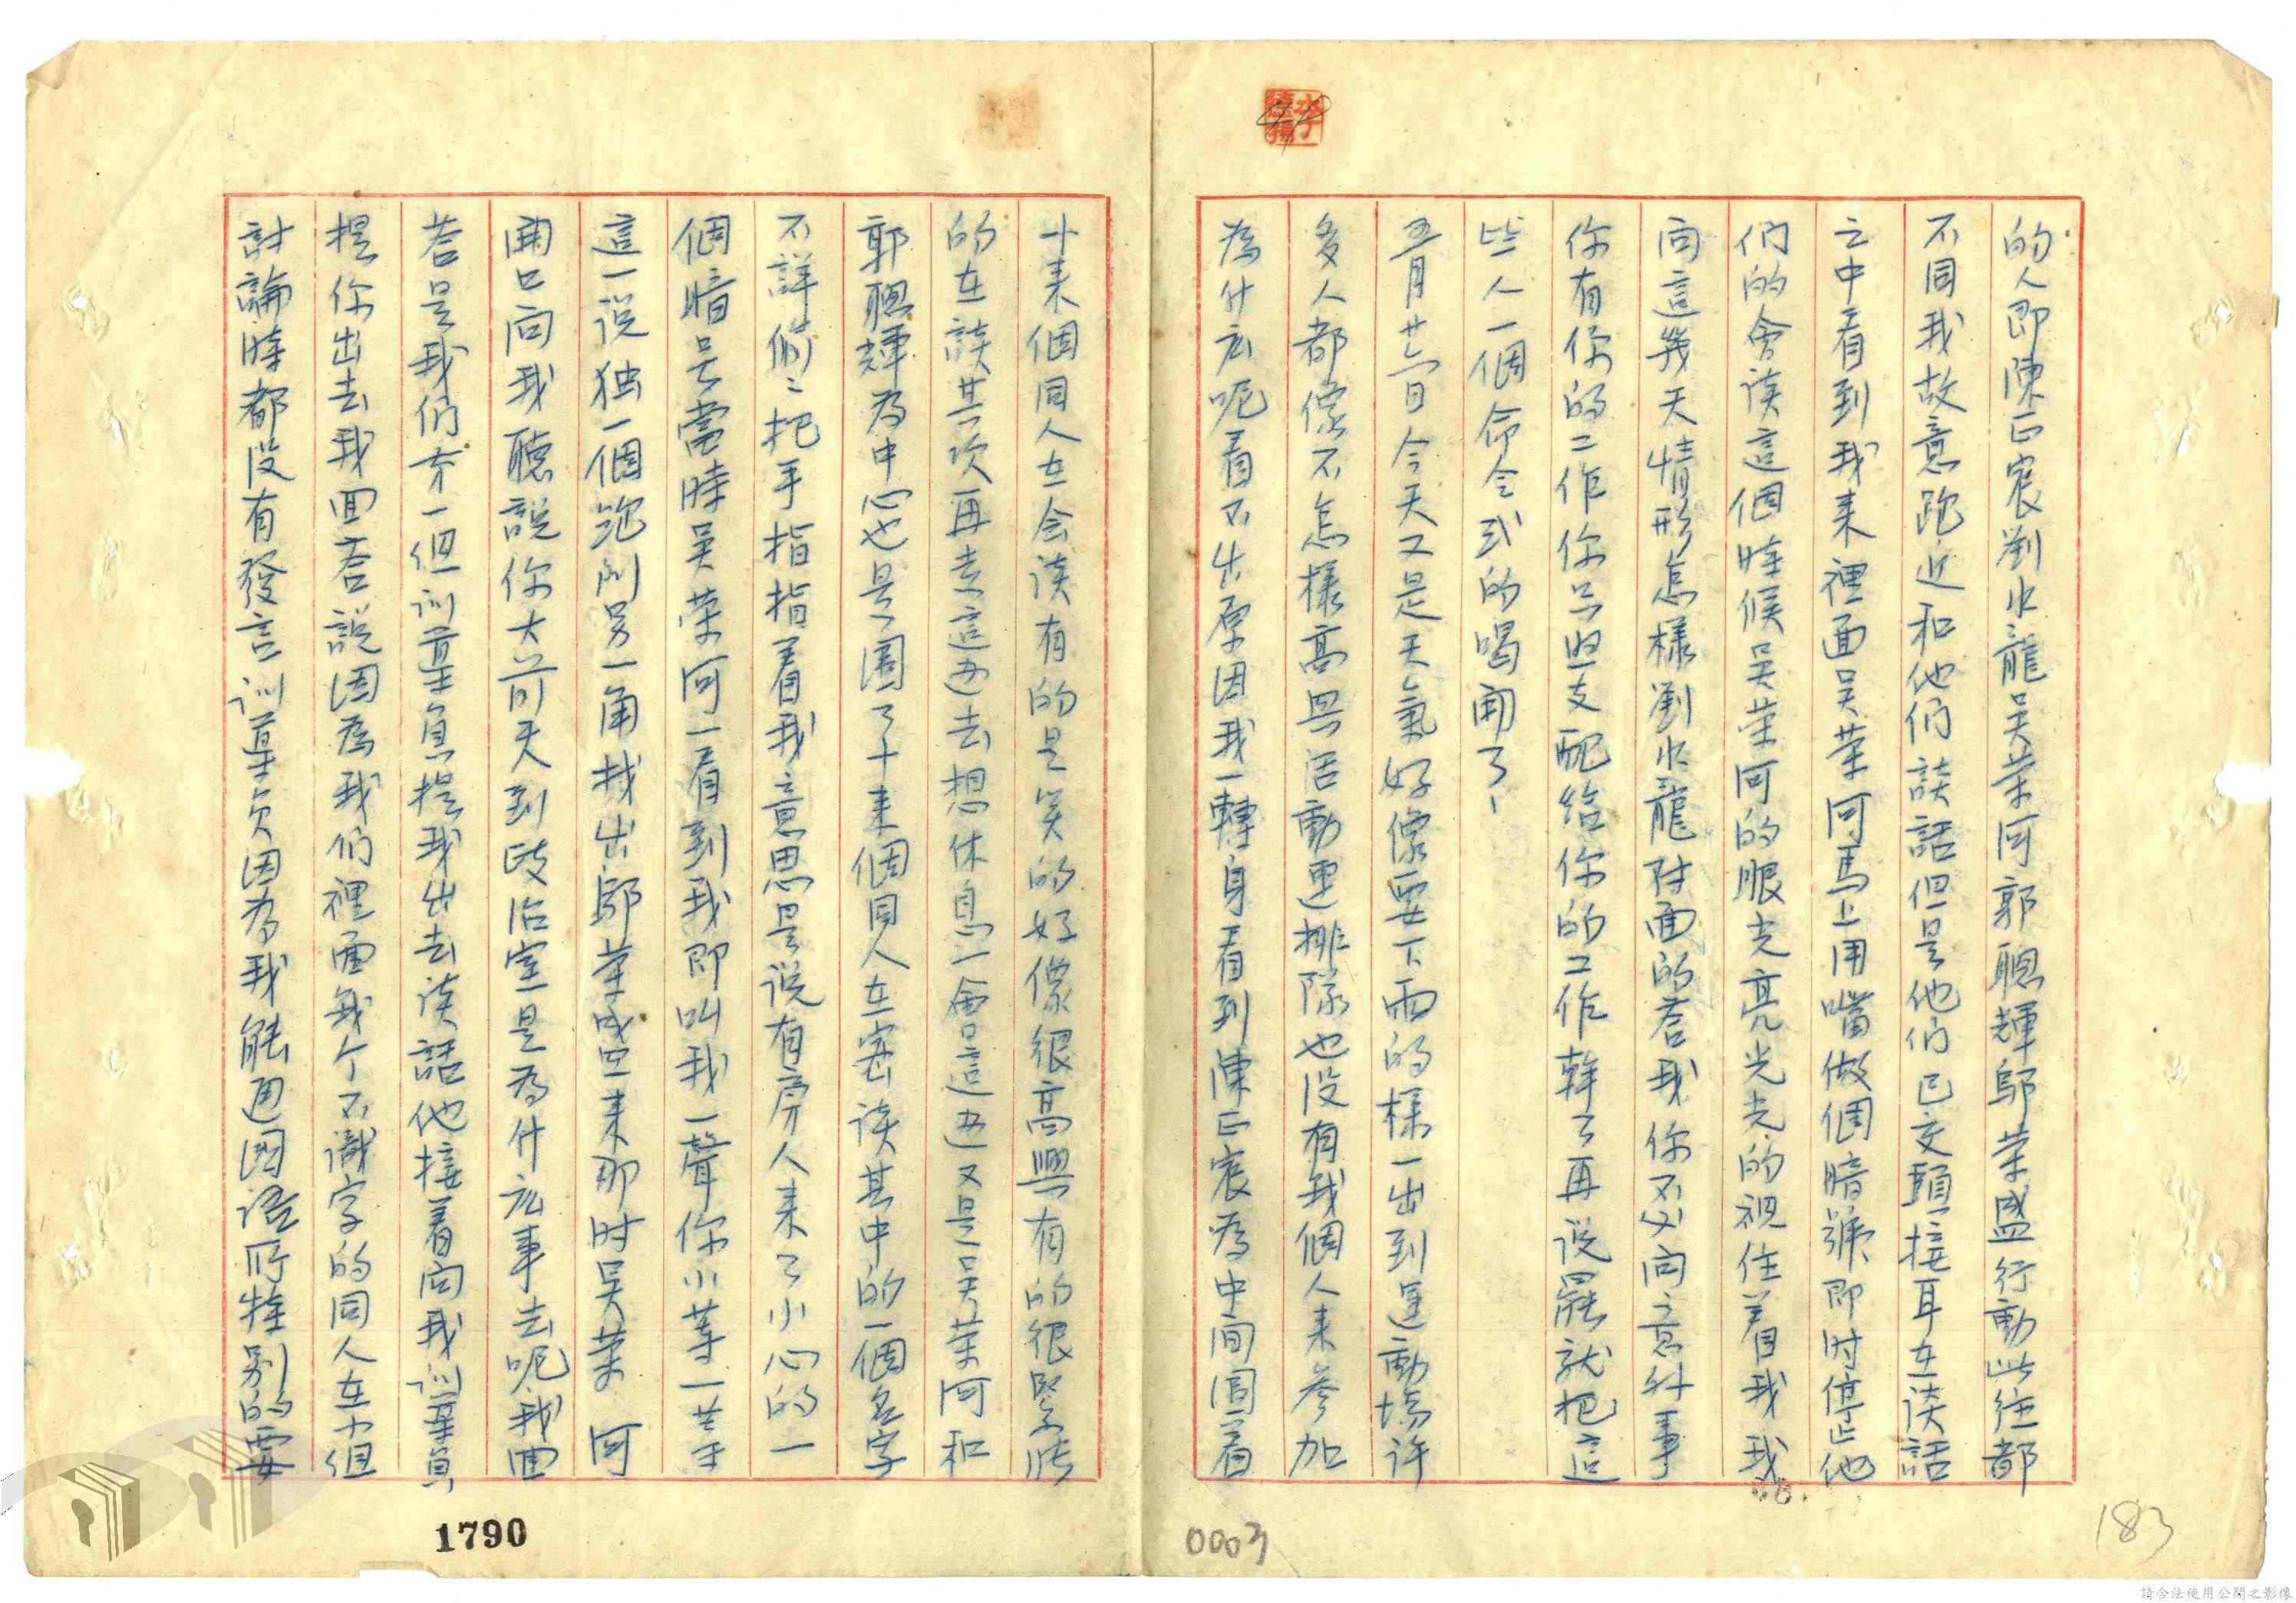 的人即陳正宸劉水龍吳荣河郭聰輝鄔荣盛行動些往都
不同我故意跑近和他们談話但是他们已交頭接耳在谈話
之中看到我来裡面吴荣河馬上用嘴做個暗號即时停止他
们的會谈這個時候吴荣河的眼光亮光光的視住着我我
向這幾天情形怎樣劉水龍对面的荅我你不必向意外事
你有你的工作你只照支配给你的工作幹了再说罷就把這
些人一個命令式的喝開了
五月廿六日今天又是天氣好像要下雨的樣一出到運動場许
多人都像不怎樣高兴活動連排隊也没有幾個人来参加
為什広呢看不出原因我一轉身看到陳正宸為中間圍着
十来個同人在会谈有的是笑的好像很高興有的很緊张
的在談其次再走這边去想休息一會這边又是吴荣河和
郭聰輝為中心也是圍了十来個同人在密谈其中的一個名字
不詳偷偷把手指指着我意思是说有旁人来了小心的一
個暗号當時吴荣河一看到我即叫我一聲你小等一等
這一说独一個跑到另一角找出鄔荣盛回来那时吴荣河
開口向我聽說你大前天到政治室是為什広事去呢我回
荅是我们第一組训導員提我出去谈話他接着向我训導員
提你出去我回荅說因為我们裡面幾个不識字的同人在小組
討論時都没有發言训導員因為我能通國语所特别的要
1790
0003
183
請合法使用公開之影像